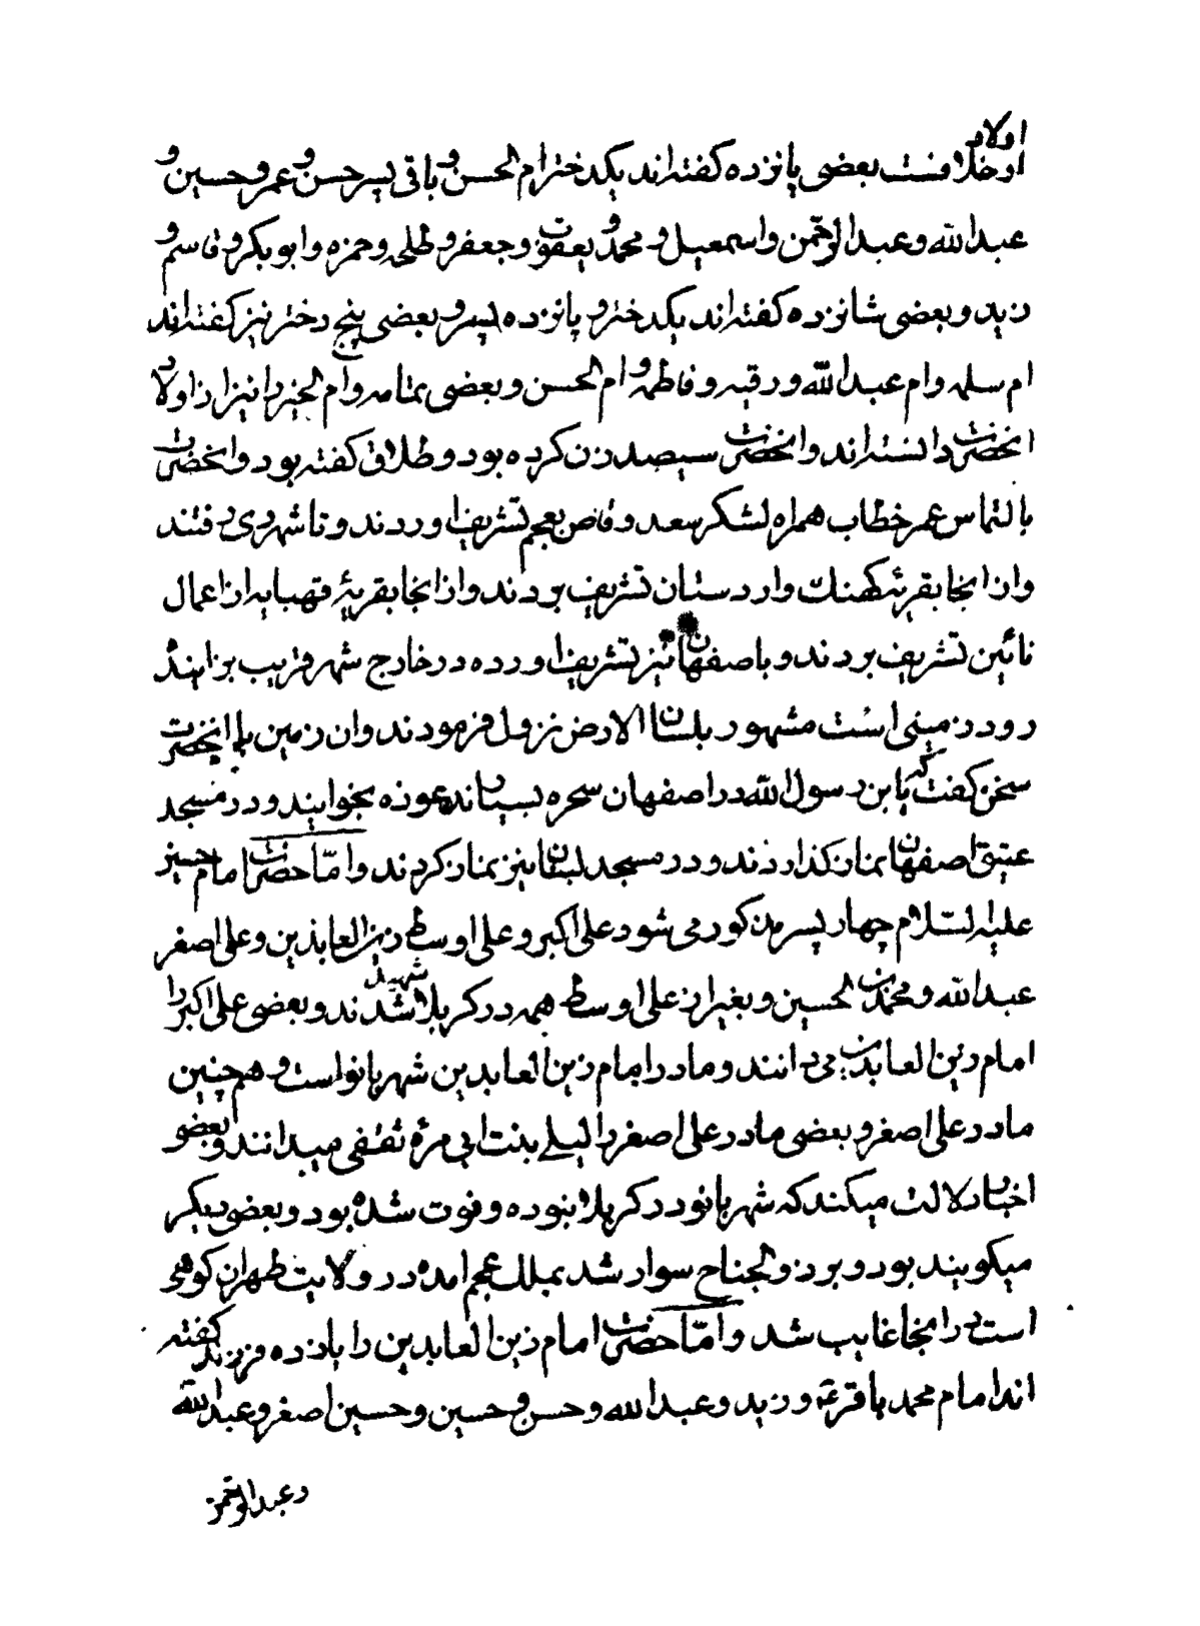 اولاد
او خلافست بعضی پانزده کفته‌اند یکدختر ام الحسن و باقی پسر حسن و عمر و حسین و
عبدالله و عبدالرحمن و اسمعیل و محمد و یعقوب و جعفر و طلحه و حمزه و ابوبکر و قاسم و
زید و بعضی شانزده کفته‌اند یکدختر و پانزده پسر و بعضی پنج دختر نیز کفته‌اند
ام سلمه و ام عبدالله و رقیه و فاطمه و ام الحسن و بعضی تمامه و ام الخیر را نیز از اولاد
انحضرت دانسته‌اند و انحضرت سیصد زن کرده بود و طلاق کفته بود و انحضرت
بالتماس عمر خطاب همراه لشکر سعد وقاص بعجم تشریف اوردند و تا شهر ری رفتند
و از انجا بقریهٔ کهنک و اردستان تشریف بردند و از انجا بقریهٔ قهپایه از اعمال
نائین تشریف بردند و باصفهان نیز تشریف اورده در خارج شهر قریب بزاینده
رود زمینی است مشهور بلسان الارض نزول فرمودند و ان زمین با انحضرت
سخن کفت که یابن رسول الله در اصفهان سحره بسیاند عوذه بخوانید و در مسجد
عتیق اصفهان نماز کذاردند و در مسجد لبنان نیز نماز کردند و امّا حضرت امام حسین
علیه السلام چهار پسر مذکور می شود علی اکبر و علی اوسط زین العابدین و علی اصغر
عبدالله و محمد بن الحسین و بغیر از علی اوسط همه در کربلا شهید شدند و بعضی علی اکبر را
امام زین العابدین می دانند و مادر امام زین العابدین شهربانو است و هم چنین
مادر علی اصغر و بعضی مادر علی اصغر را لیلی بنت ابی مرّه ثقفی میدانند و بعضی
اخبار دلالت میکند که شهربانو در کربلا نبوده و فوت شده بود و بعضی دیکر
میکویند بود و بر ذو الجناح سوار شد بملک عجم امده در ولایت طهران کوهی
است در انجا غایب شد و امّا حضرت امام زین العابدین را پانزده فرزند کفته
اند امام محمد باقر ع و زید و عبدالله و حسن و حسین و حسین اصغر و عبدالله
و عبدالرحمن